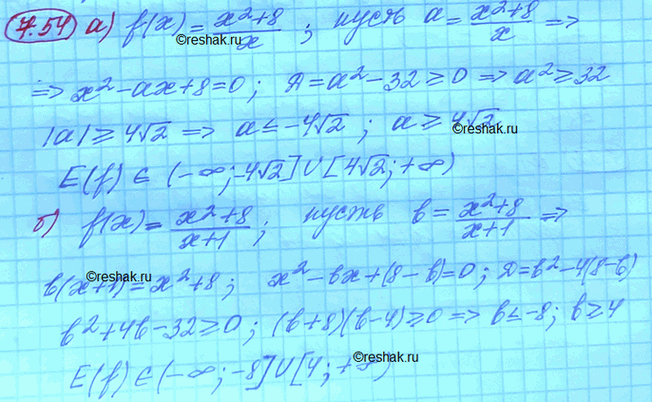 7.54 а) f(x) = x²+8/x ; пусть a = x²+8/x ⇒
⇒ x² - ax + 8 = 0 ; Д = a² - 32 ≥ 0 ⇒ a² ≥ 32
|a| ≥ 4√2 ⇒ a ≤ -4√2 ; a ≥ 4√2
E(f) ∈ (-∞; -4√2] ∪ [4√2; +∞)
б) f(x) = x²+8/x+1 ; пусть в = x²+8/x+1 ⇒
в(x+1) = x²+8 ; x² - вx + (8 - в) = 0 ; Д = в² - 4(8-в)
в² + 4в - 32 ≥ 0 ; (в+8)(в-4) ≥ 0 ⇒ в ≤ -8; в ≥ 4
E(f) ∈ (-∞; -8] ∪ [4; +∞)
©reshak.ru
©reshak.ru
©reshak.ru
©reshak.ru
©reshak.ru
©reshak.ru